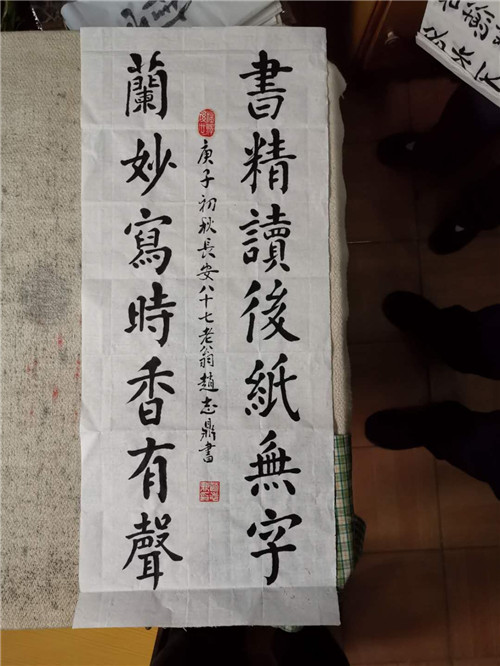 書精讀後紙無字
蘭妙寫時香有聲
庚子初秋長安八十七老翁趙志鼎書